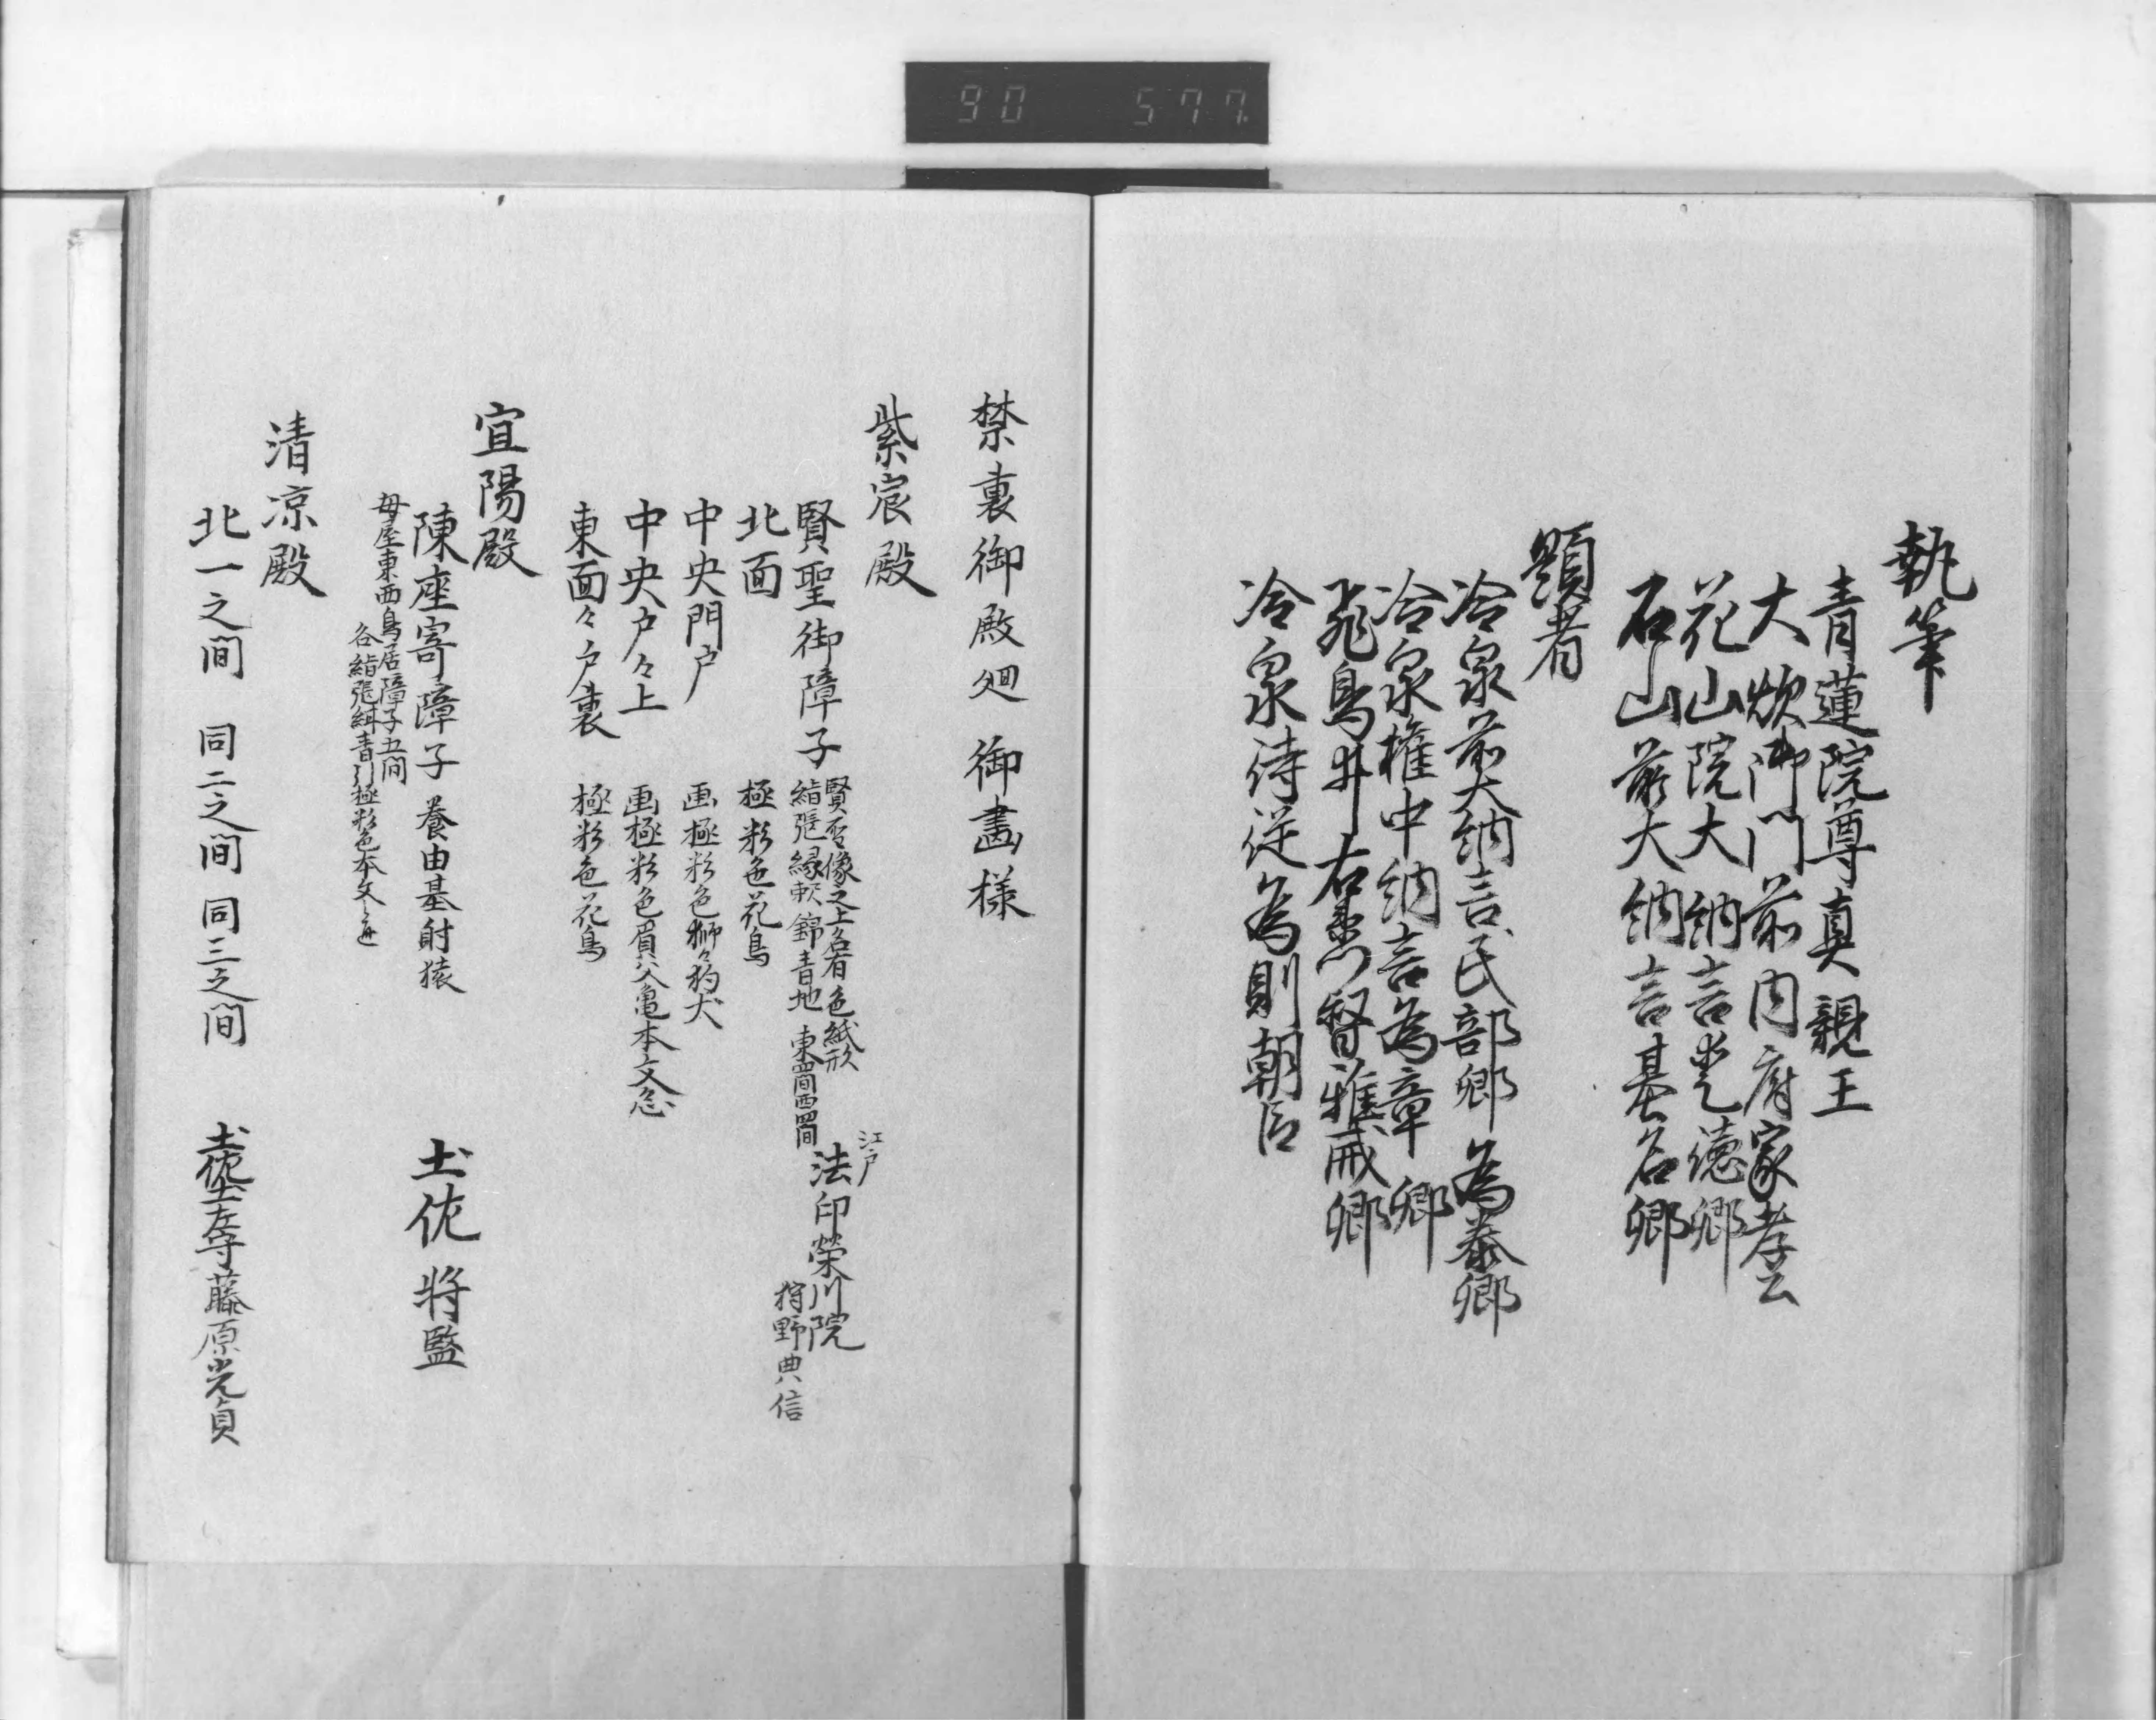 90 577
執筆
青蓮院尊真親王
大炊御門前内府家孝公
花山院大納言愛徳卿
石山前大納言基名卿
題者
冷泉前大納言民部卿為泰卿
冷泉権中納言為章卿
飛鳥井右兵衛督雅威卿
冷泉侍従為則朝臣
禁裏御殿廻御畵様
紫宸殿
賢聖御障子
賢否像之上名有色紙形
絹張縁軟錦青地 東四間西四間
江戸
法印榮川院
狩野典信
北面 極彩色花鳥
中央門戸 画極彩色獅々狛犬
中央戸々上 画極彩色負文亀本文
東面々戸裏 極彩色花鳥
宜陽殿
陳座寄障子 養由基射猿 土佐将監
母屋東西鳥居障子五間
各絹張絹青引極彩色本文
清凉殿
北一之間 同二之間 同三之間 土佐守藤原光貞